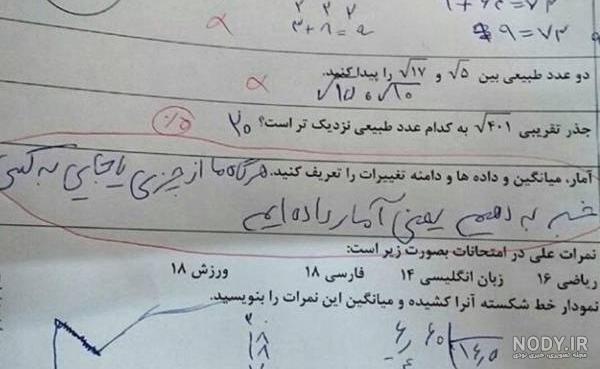 ۲ ۲ ۲
۳+۸=۹
۹=۷۳
دو عدد طبیعی بین √۵ و √۱۷ را پیدا کنید.
√۱۵ و √۱۰
جذر تقریبی √۴۰۱ به کدام عدد طبیعی نزدیک تر است؟ ۲۰
آمار، میانگین و داده ها و دامنه تغییرات را تعریف کنید. هرگاه ما از چیزی یا جایی به کسی
خبر بدهیم یعنی آمار داده ایم
نمرات علی در امتحانات بصورت زیر است:
ریاضی ۱۶ زبان انگلیسی ۱۴ فارسی ۱۸ ورزش ۱۸
نمودار خط شکسته آنرا کشیده و میانگین این نمرات را بنویسید.
۱۸
۱۸
۱۶٫۵
NODY.IR